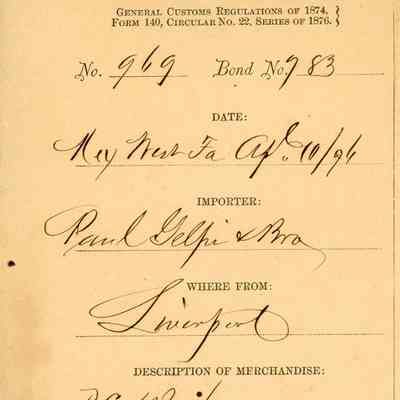 GENERAL CUSTOMS REGULATIONS OF 1874,
FORM 140, CIRCULAR NO. 22, SERIES OF 1876.
No. 969 Bond No. 983
DATE:
Key West Fa Apl. 10/96
IMPORTER:
Paul Gelpi & Bro
WHERE FROM:
Liverpool
DESCRIPTION OF MERCHANDISE: